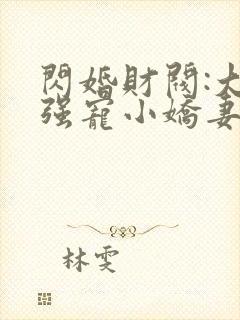 閃婚財閥:大
强寵小嬌妻
林雯